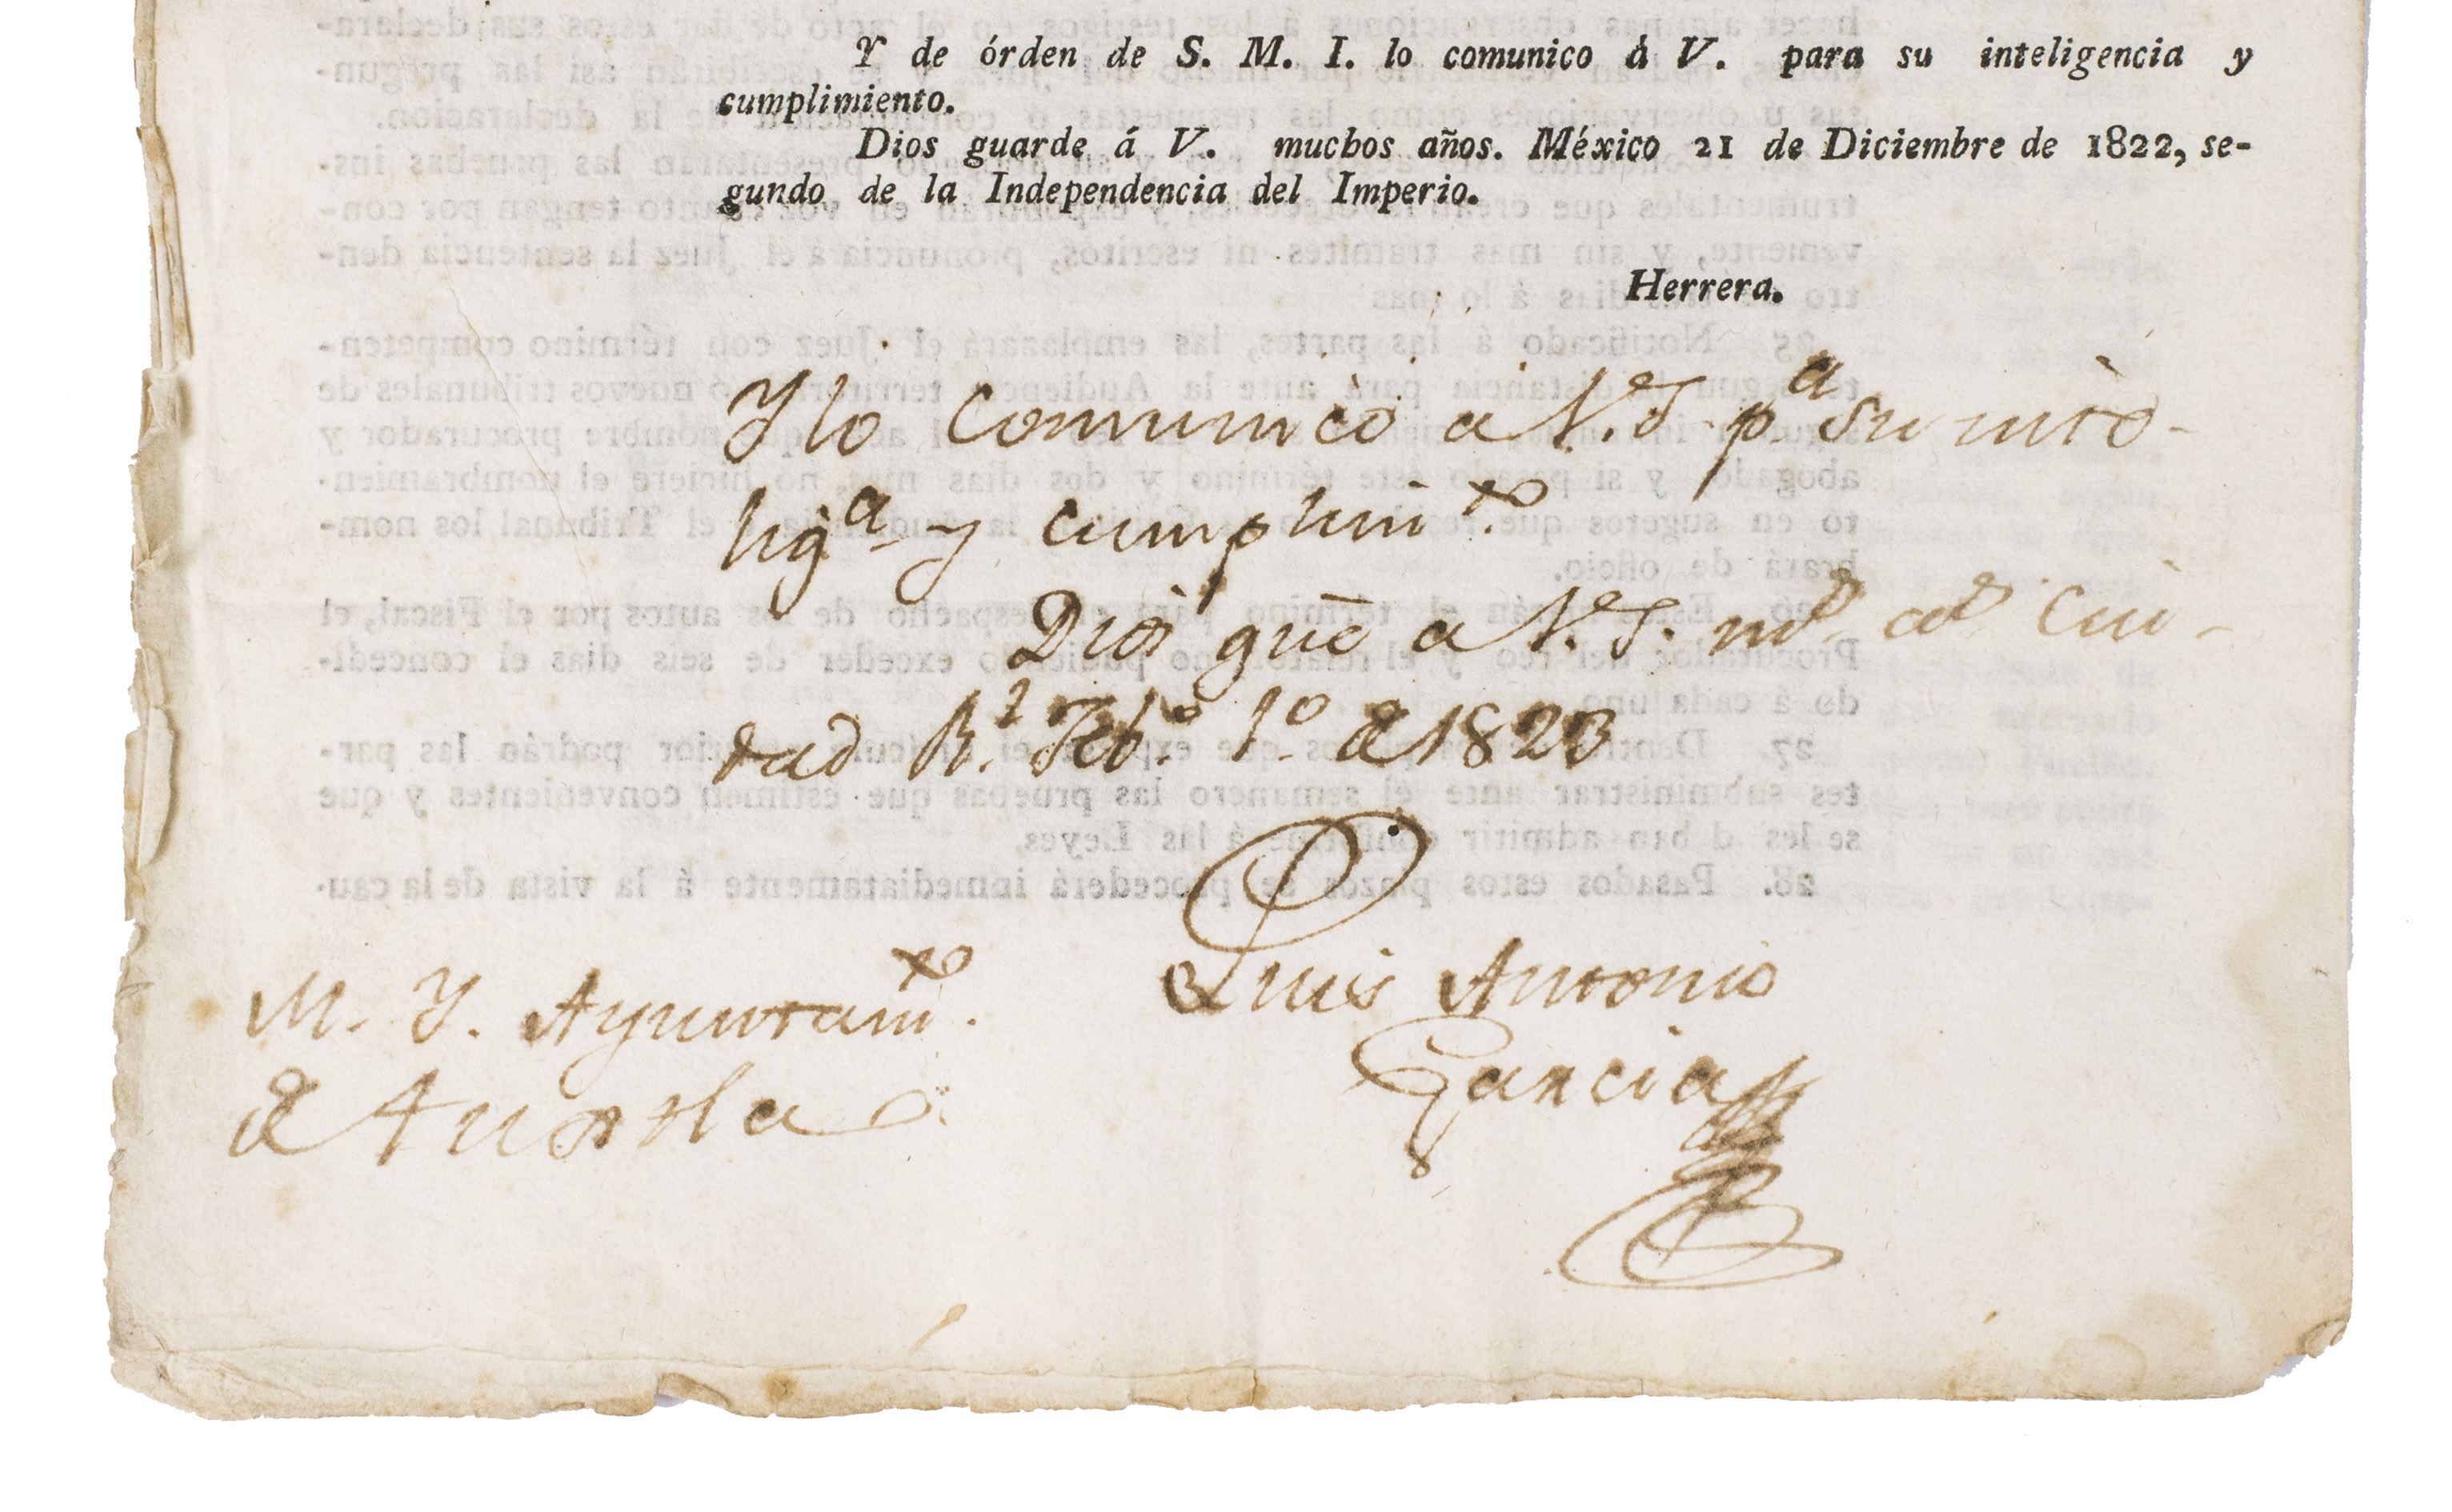 Y de órden de S. M. I. lo comunico á V. para su inteligencia y
cumplimiento.
Dios guarde á V. muchos años. México 21 de Diciembre de 1822, se-
gundo de la Independencia del Imperio.
Herrera.
Y lo comunico a V.eS. p.a su inte-
lig.a y cumplim.to
Dios gue a V.eS. m.s a.s Ciu-
dad R.l Feb.o 1.o de 1823
Luis Antonio
Garcia
M. Y. Ayuntam.to
de Tuxtla